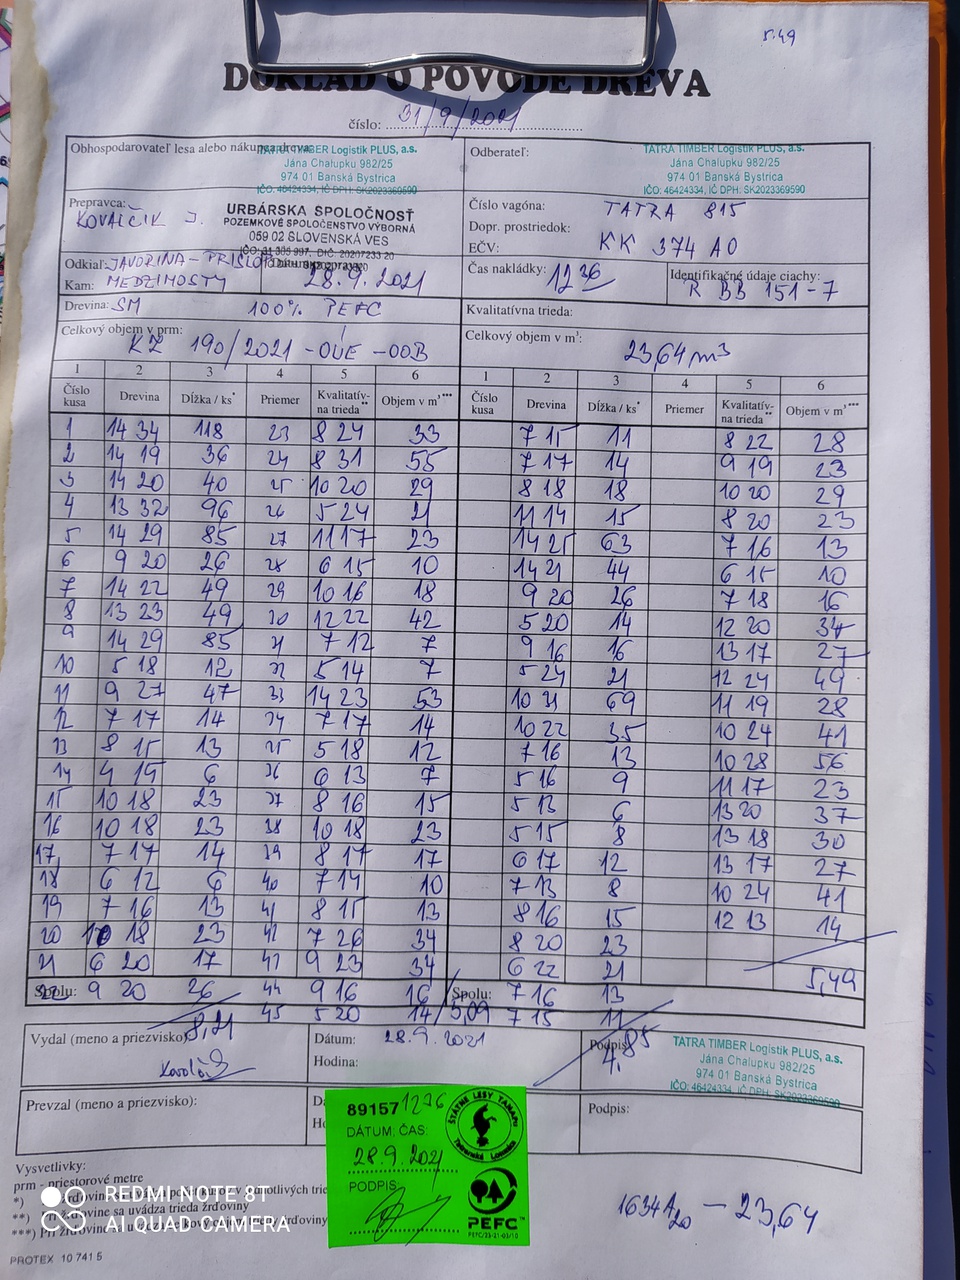 5.49
DOKLAD O PÔVODE DREVA
číslo: 31/9/2021
Obhospodarovateľ lesa alebo nákupca dreva:
TATRA TIMBER Logistik PLUS, a.s.
Jána Chalupku 982/25
974 01 Banská Bystrica
IČO: 46424334, IČ DPH: SK2023369590
Odberateľ:
TATRA TIMBER Logistik PLUS, a.s.
Jána Chalupku 982/25
974 01 Banská Bystrica
IČO: 46424334, IČ DPH: SK2023369590
Prepravca: KOVALČIK J.
URBÁRSKA SPOLOČNOSŤ
POZEMKOVÉ SPOLOČENSTVO VÝBORNÁ
059 02 SLOVENSKÁ VES
Číslo vagóna: TATRA 815
Dopr. prostriedok:
EČV: KK 374 AO
Odkiaľ: JAVORINA - PRISLOP
Kam: MEDZIMOSTY
28.9.2021
Čas nakládky: 12 36
Identifikačné údaje ciachy:
R BB 151-7
Drevina: SM 100% PEFC
Kvalitatívna trieda:
Celkový objem v prm:
KZ 190/2021-OUE-OOB
Celkový objem v m³:
23,64 m³
1 2 3 4 5 6 1 2 3 4 5 6
Číslo kusa Drevina Dĺžka / ks* Priemer Kvalitatív-na trieda** Objem v m³*** Číslo kusa Drevina Dĺžka / ks* Priemer Kvalitatív-na trieda** Objem v m³***
1 14 34 118 23 8 24 33 7 15 11 8 22 28
2 14 19 36 24 8 31 55 7 17 14 9 19 23
3 14 20 40 25 10 20 29 8 18 18 10 20 29
4 13 32 96 26 5 24 21 11 14 15 8 20 23
5 14 29 85 27 11 17 23 14 25 63 7 16 13
6 9 20 26 28 6 15 10 14 21 44 6 15 10
7 14 22 49 29 10 16 18 9 20 26 7 18 16
8 13 23 49 30 12 22 42 5 20 14 12 20 34
9 14 29 85 31 7 12 7 9 16 16 13 17 27
10 5 18 12 32 5 14 7 5 24 21 12 24 49
11 9 27 47 33 14 23 53 10 31 69 11 19 28
12 7 17 14 34 7 17 14 10 22 35 10 24 41
13 8 15 13 35 5 18 12 7 16 13 10 28 56
14 4 15 6 36 6 13 7 5 16 9 11 17 23
15 10 18 23 37 8 16 15 5 13 6 13 20 37
16 10 18 23 38 10 18 23 5 15 8 13 18 30
17 7 17 14 39 8 17 17 6 17 12 13 17 27
18 6 12 6 40 7 14 10 7 13 8 10 24 41
19 7 16 13 41 8 15 13 8 16 15 12 13 14
20 10 18 23 42 7 26 34 8 20 23
21 6 20 17 43 9 23 34 6 22 21 5,49
Spolu: 22 9 20 26 44 9 16 16 Spolu: 7 16 13
8,21 45 5 20 14 5,09 7 15 11
4,85
Vydal (meno a priezvisko):
Dátum: 28.9.2021
Hodina:
Podpis:
TATRA TIMBER Logistik PLUS, a.s.
Jána Chalupku 982/25
974 01 Banská Bystrica
IČO: 46424334, IČ DPH: SK2023369590
Prevzal (meno a priezvisko):
Podpis:
89157 1236
DÁTUM, ČAS:
28.9.2021
PODPIS:
ŠTÁTNE LESY TANAPu
Tatranská Lomnica
PEFC™
PEFC/23-21-03/10
Vysvetlivky:
prm - priestorové metre
1634A20 - 23,64
PROTEX 10 741 5
REDMI NOTE 8T
AI QUAD CAMERA